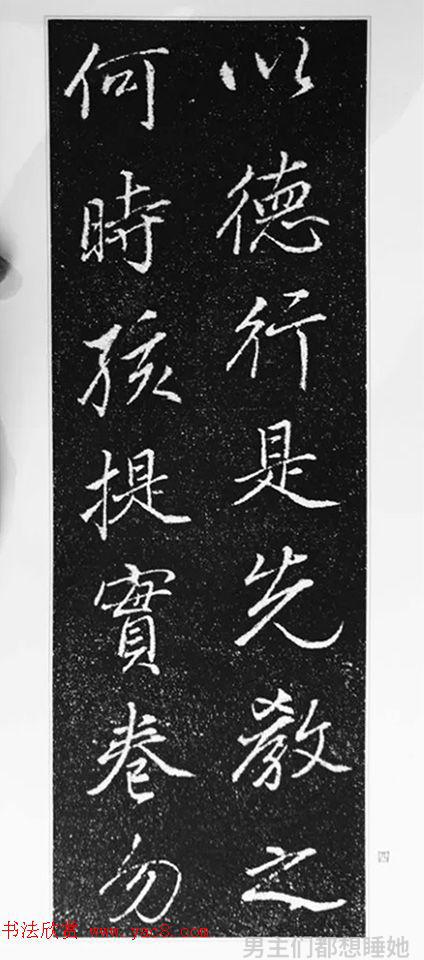 以德行是先教之
何時孩提實卷勿
书法欣赏 www.yac8.com
男主们都想睡她